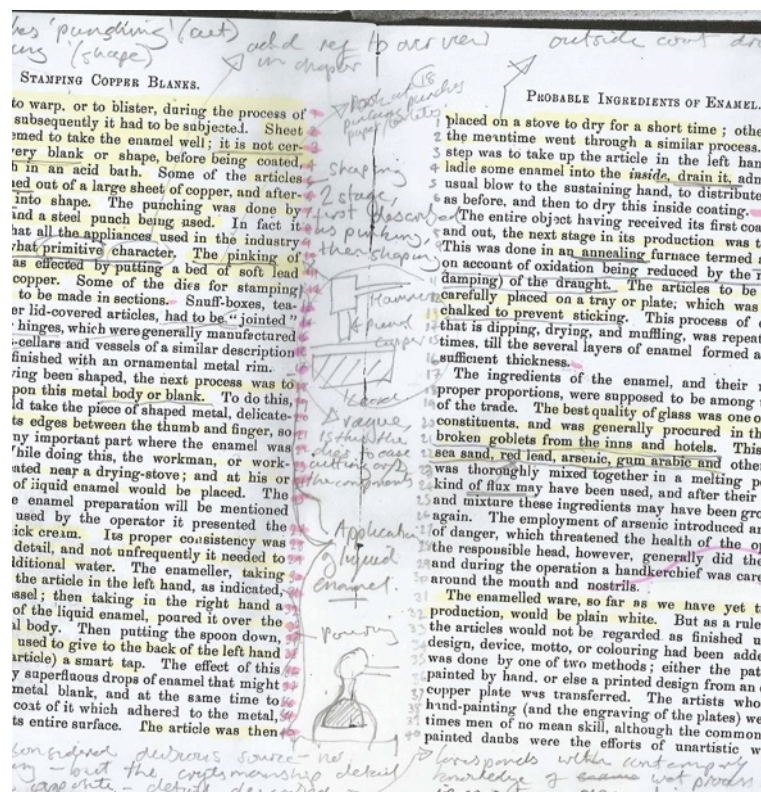 'punching' (cut)
(shape)
add ref to overview
in chapter
outside court
STAMPING COPPER BLANKS.
to warp. or to blister, during the process of
subsequently it had to be subjected. Sheet
emed to take the enamel well; it is not cer-
very blank or shape, before being coated,
h in an acid bath. Some of the articles
ed out of a large sheet of copper, and after-
into shape. The punching was done by
and a steel punch being used. In fact it
hat all the appliances used in the industry
what primitive character. The pinking of
as effected by putting a bed of soft lead
copper. Some of the dies for stamping
to be made in sections. Snuff-boxes, tea-
er lid-covered articles, had to be "jointed"
hinges, which were generally manufactured
-cellars and vessels of a similar description
finished with an ornamental metal rim.
ving been shaped, the next process was to
pon this metal body or blank. To do this,
ld take the piece of shaped metal, delicate-
ts edges between the thumb and finger, so
ny important part where the enamel was
While doing this, the workman, or work-
ated near a drying-stove; and at his or
of liquid enamel would be placed. The
e enamel preparation will be mentioned
used by the operator it presented the
ick cream. Its proper consistency was
detail, and not unfrequently it needed to
lditional water. The enameller, taking
the article in the left hand, as indicated,
ssel; then taking in the right hand a
of the liquid enamel, poured it over the
al body. Then putting the spoon down,
used to give to the back of the left hand
article) a smart tap. The effect of this
y superfluous drops of enamel that might
metal blank, and at the same time to
coat of it which adhered to the metal,
ts entire surface. The article was then
18
shaping
2 stage,
first described
as pinking,
then shaping
Hammer
punch
copper
Lead
vague,
is this the
dies to ease
cutting or
the components
Application
of liquid
enamel.
pouring
PROBABLE INGREDIENTS OF ENAMEL.
placed on a stove to dry for a short time; othe
the meantime went through a similar process.
step was to take up the article in the left han
ladle some enamel into the inside, drain it, adm
usual blow to the sustaining hand, to distribute
as before, and then to dry this inside coating.
The entire object having received its first coa
and out, the next stage in its production was t
This was done in an annealing furnace termed a
on account of oxidation being reduced by the r
damping) of the draught. The articles to be
carefully placed on a tray or plate, which was
chalked to prevent sticking. This process of
that is dipping, drying, and muffling, was repeat
times, till the several layers of enamel formed a
sufficient thickness.
The ingredients of the enamel, and their
proper proportions, were supposed to be among
of the trade. The best quality of glass was one o
constituents, and was generally procured in th
broken goblets from the inns and hotels. This
sea sand, red lead, arsenic, gum arabic and othe
was thoroughly mixed together in a melting p
kind of flux may have been used, and after their
and mixture these ingredients may have been gro
again. The employment of arsenic introduced an
of danger, which threatened the health of the op
the responsible head, however, generally did the
and during the operation a handkerchief was care
around the mouth and nostrils.
The enamelled ware, so far as we have yet t
production, would be plain white. But as a rule
the articles would not be regarded as finished u
design, device, motto, or colouring had been adde
was done by one of two methods; either the pat
painted by hand. or else a printed design from an
copper plate was transferred. The artists who
hand-painting (and the engraving of the plates) we
times men of no mean skill, although the common
painted daubs were the efforts of unartistic w
considered dubious source - not
but the craftsmanship detail
corresponds with contemporary
knowledge of wet process